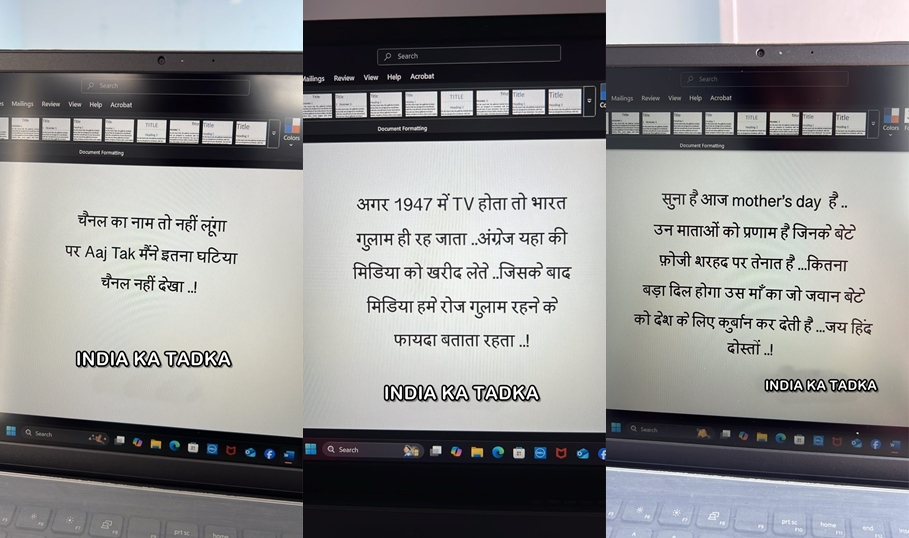 Search
Mailings Review View Help Acrobat
Title Title Title Title TITLE Title Title Title
Document Formatting
Colors
चैनल का नाम तो नहीं लूंगा
पर Aaj Tak मैंने इतना घटिया
चैनल नहीं देखा ..!
INDIA KA TADKA
Search
prt sc
home
F10
Search
Mailings Review View Help Acrobat
Title Title Title Title TITLE Title Title Title
Document Formatting
अगर 1947 में TV होता तो भारत
गुलाम ही रह जाता ..अंग्रेज यहा की
मिडिया को खरीद लेते ..जिसके बाद
मिडिया हमे रोज गुलाम रहने के
फायदा बताता रहता ..!
INDIA KA TADKA
Search
Search
Mailings Review View Help Acrobat
TITLE Title Title Title
Document Formatting
Colors
सुना है आज mother's day है ..
उन माताओं को प्रणाम है जिनके बेटे
फ़ोजी शरहद पर तेनात है ...कितना
बड़ा दिल होगा उस माँ का जो जवान बेटे
को देश के लिए कुर्बान कर देती है ...जय हिंद
दोस्तों ..!
INDIA KA TADKA
Search
prt sc
home
end
F10